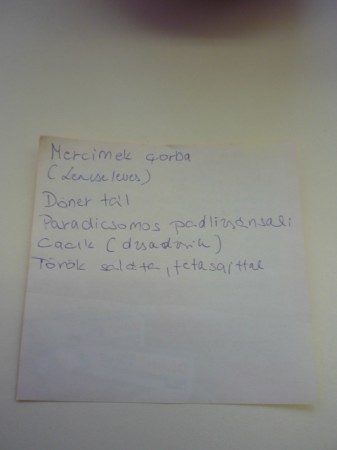 Mercimek çorba
(Lencseleves)
Döner tál
Paradicsomos padlizsánsali
Cacık (dzadzik)
Török saláta, fetasajttal